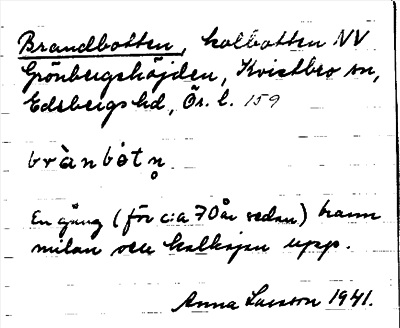 Brandbotten, kolbotten NV
Grönbergshöjden, Kvistbro sn,
Edsbergs hd, Ör. l. 159
bràn bòtn̥
En gång (för c:a 70 år sedan) brann
milan och kolkojan upp.
Anna Larsson 1941.